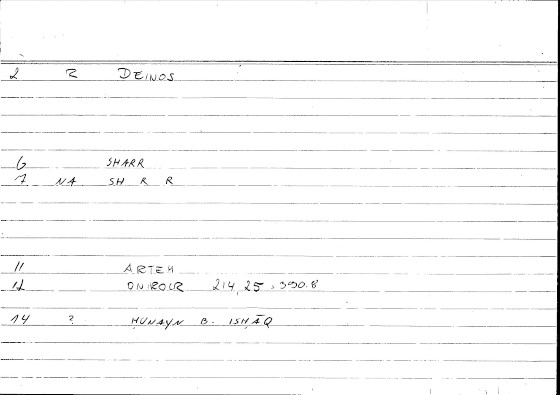 2 R DEINOS
6 SHARR
7 NA SH R R
11 ARTEM
12 ONIROCR 214,25 , 390.8
14 ? ḤUNAYN B. ISḤĀQ